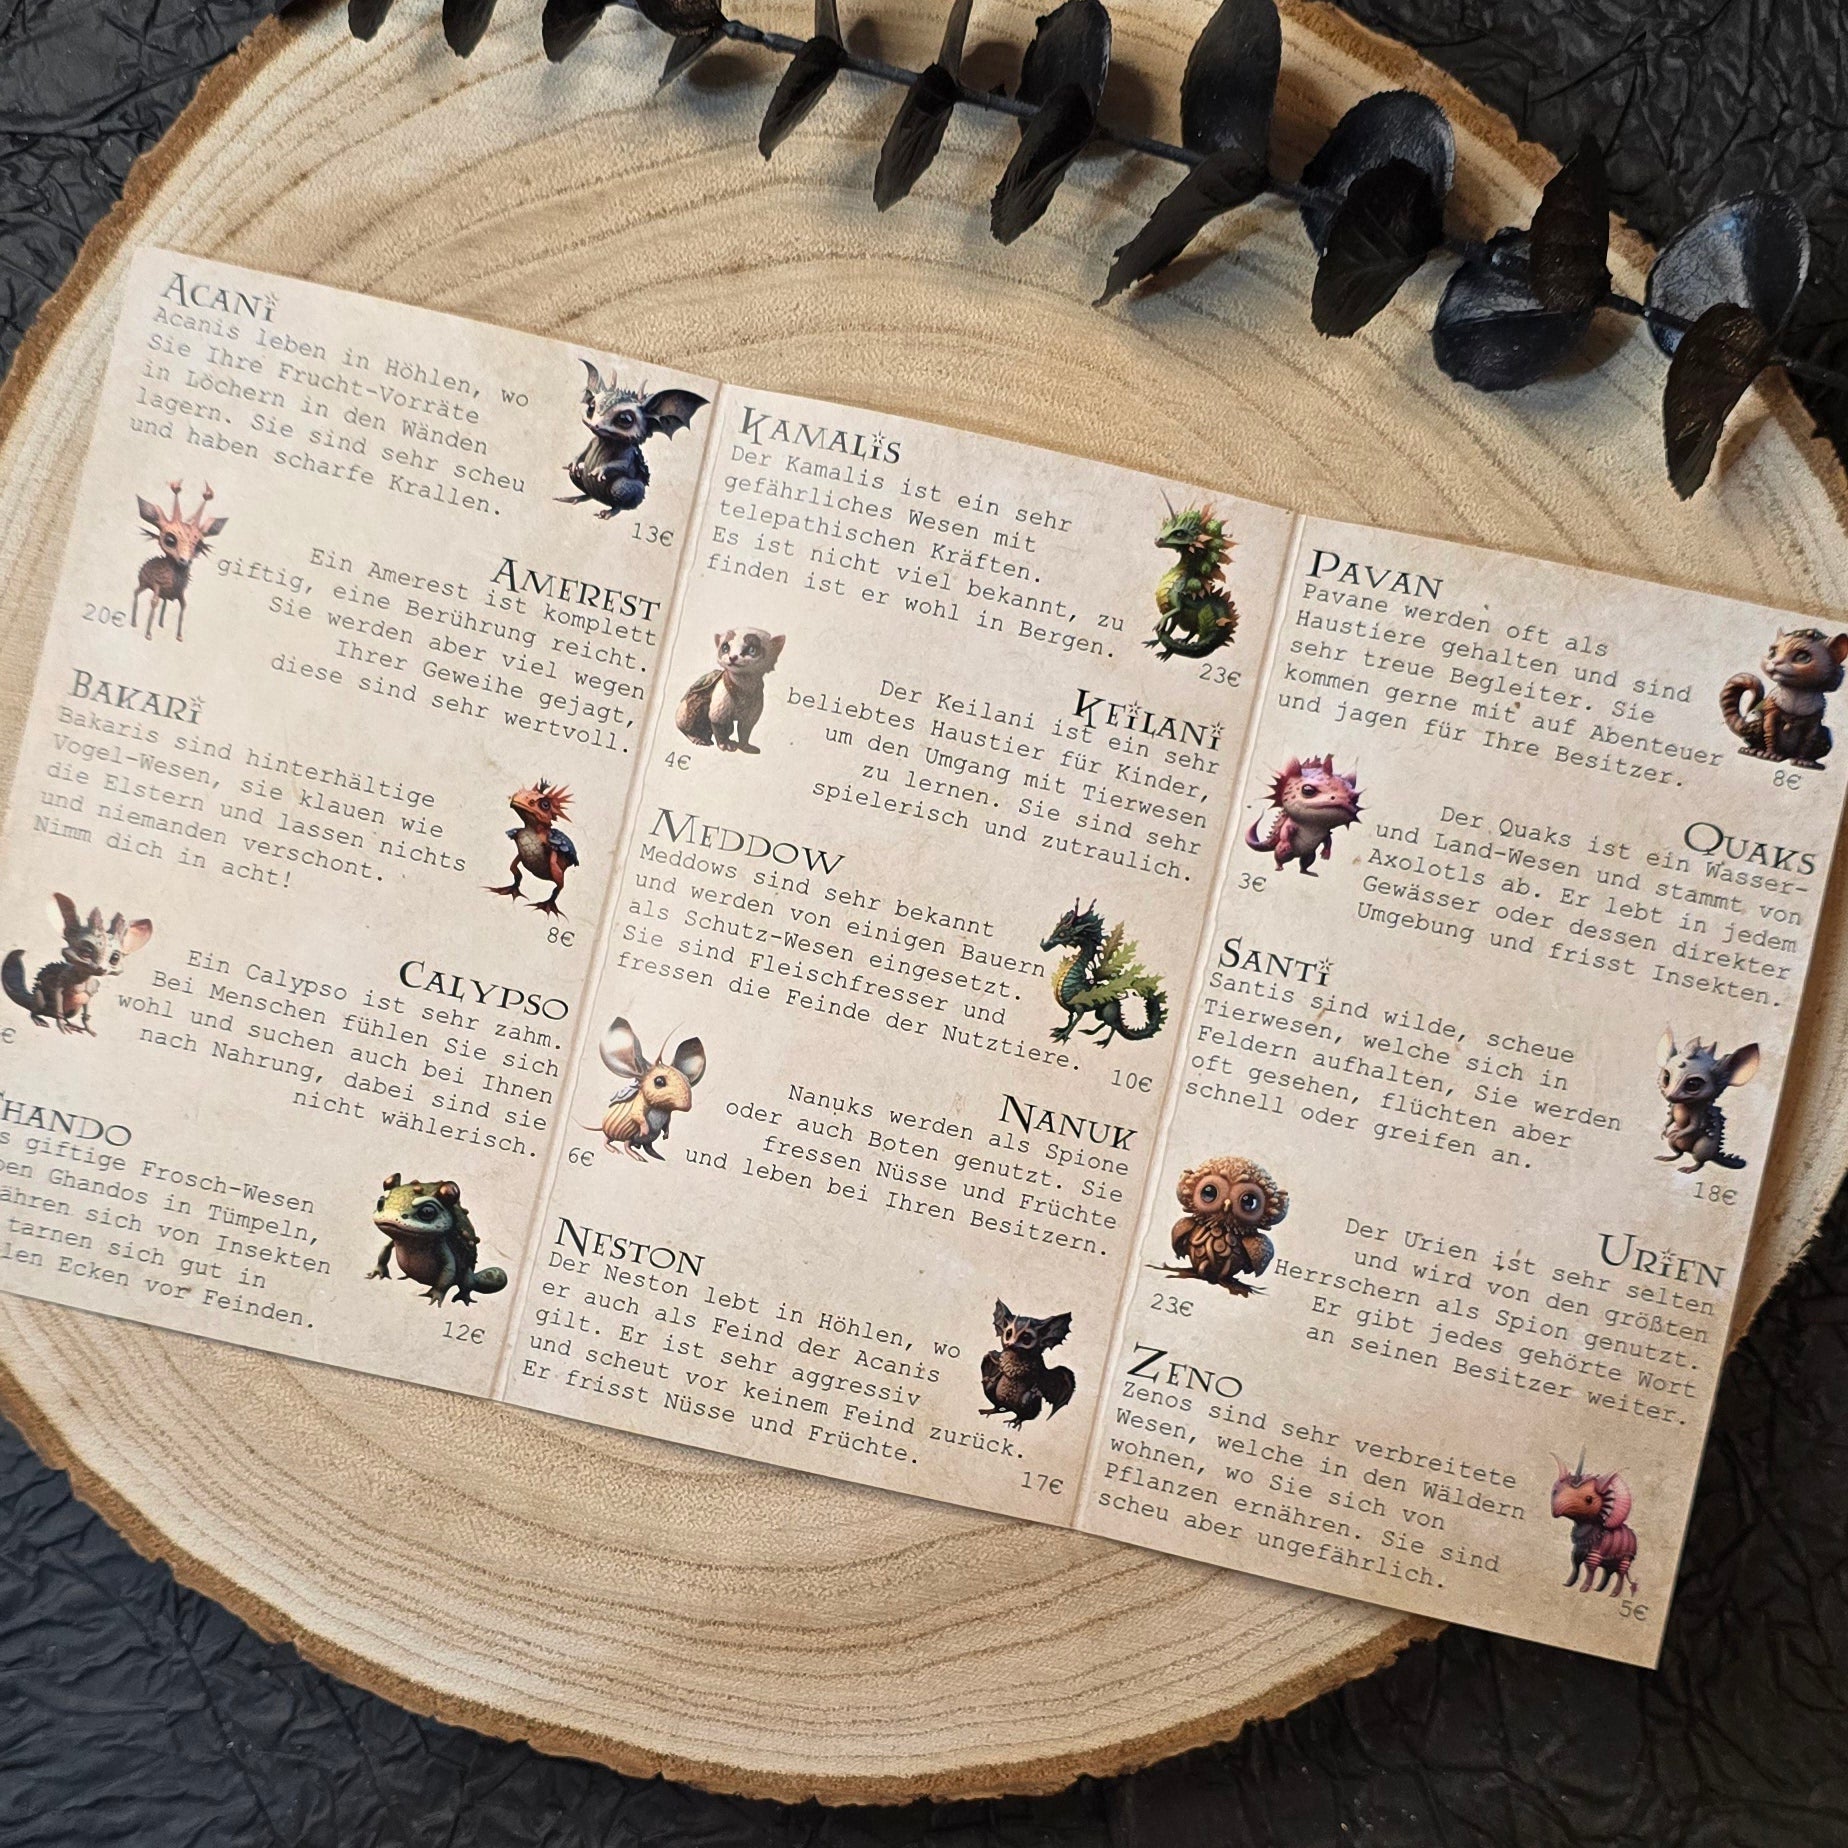 Acani
Acanis leben in Höhlen, wo
Sie Ihre Frucht-Vorräte
in Löchern in den Wänden
lagern. Sie sind sehr scheu
und haben scharfe Krallen.
13€
Amerest
Ein Amerest ist komplett
giftig, eine Berührung reicht.
Sie werden aber viel wegen
Ihrer Geweihe gejagt,
diese sind sehr wertvoll.
20€
Bakari
Bakaris sind hinterhältige
Vogel-Wesen, sie klauen wie
die Elstern und lassen nichts
und niemanden verschont.
Nimm dich in acht!
8€
Calypso
Ein Calypso ist sehr zahm.
Bei Menschen fühlen Sie sich
wohl und suchen auch bei Ihnen
nach Nahrung, dabei sind sie
nicht wählerisch.
€
giftige Frosch-Wesen
Ghandos in Tümpeln,
sich von Insekten
tarnen sich gut in
Ecken vor Feinden.
12€
Kamalis
Der Kamalis ist ein sehr
gefährliches Wesen mit
telepathischen Kräften.
Es ist nicht viel bekannt, zu
finden ist er wohl in Bergen.
23€
Keilani
Der Keilani ist ein sehr
beliebtes Haustier für Kinder,
um den Umgang mit Tierwesen
zu lernen. Sie sind sehr
spielerisch und zutraulich.
4€
Meddow
Meddows sind sehr bekannt
und werden von einigen Bauern
als Schutz-Wesen eingesetzt.
Sie sind Fleischfresser und
fressen die Feinde der Nutztiere.
10€
Nanuk
Nanuks werden als Spione
oder auch Boten genutzt. Sie
fressen Nüsse und Früchte
und leben bei Ihren Besitzern.
6€
Neston
Der Neston lebt in Höhlen, wo
er auch als Feind der Acanis
gilt. Er ist sehr aggressiv
und scheut vor keinem Feind zurück.
Er frisst Nüsse und Früchte.
17€
Pavan
Pavane werden oft als
Haustiere gehalten und sind
sehr treue Begleiter. Sie
kommen gerne mit auf Abenteuer
und jagen für Ihre Besitzer.
8€
Quaks
Der Quaks ist ein Wasser-
und Land-Wesen und stammt von
Axolotls ab. Er lebt in jedem
Gewässer oder dessen direkter
Umgebung und frisst Insekten.
3€
Santi
Santis sind wilde, scheue
Tierwesen, welche sich in
Feldern aufhalten, Sie werden
oft gesehen, flüchten aber
schnell oder greifen an.
18€
Urien
Der Urien ist sehr selten
und wird von den größten
Herrschern als Spion genutzt.
Er gibt jedes gehörte Wort
an seinen Besitzer weiter.
23€
Zeno
Zenos sind sehr verbreitete
Wesen, welche in den Wäldern
wohnen, wo Sie sich von
Pflanzen ernähren. Sie sind
scheu aber ungefährlich.
5€